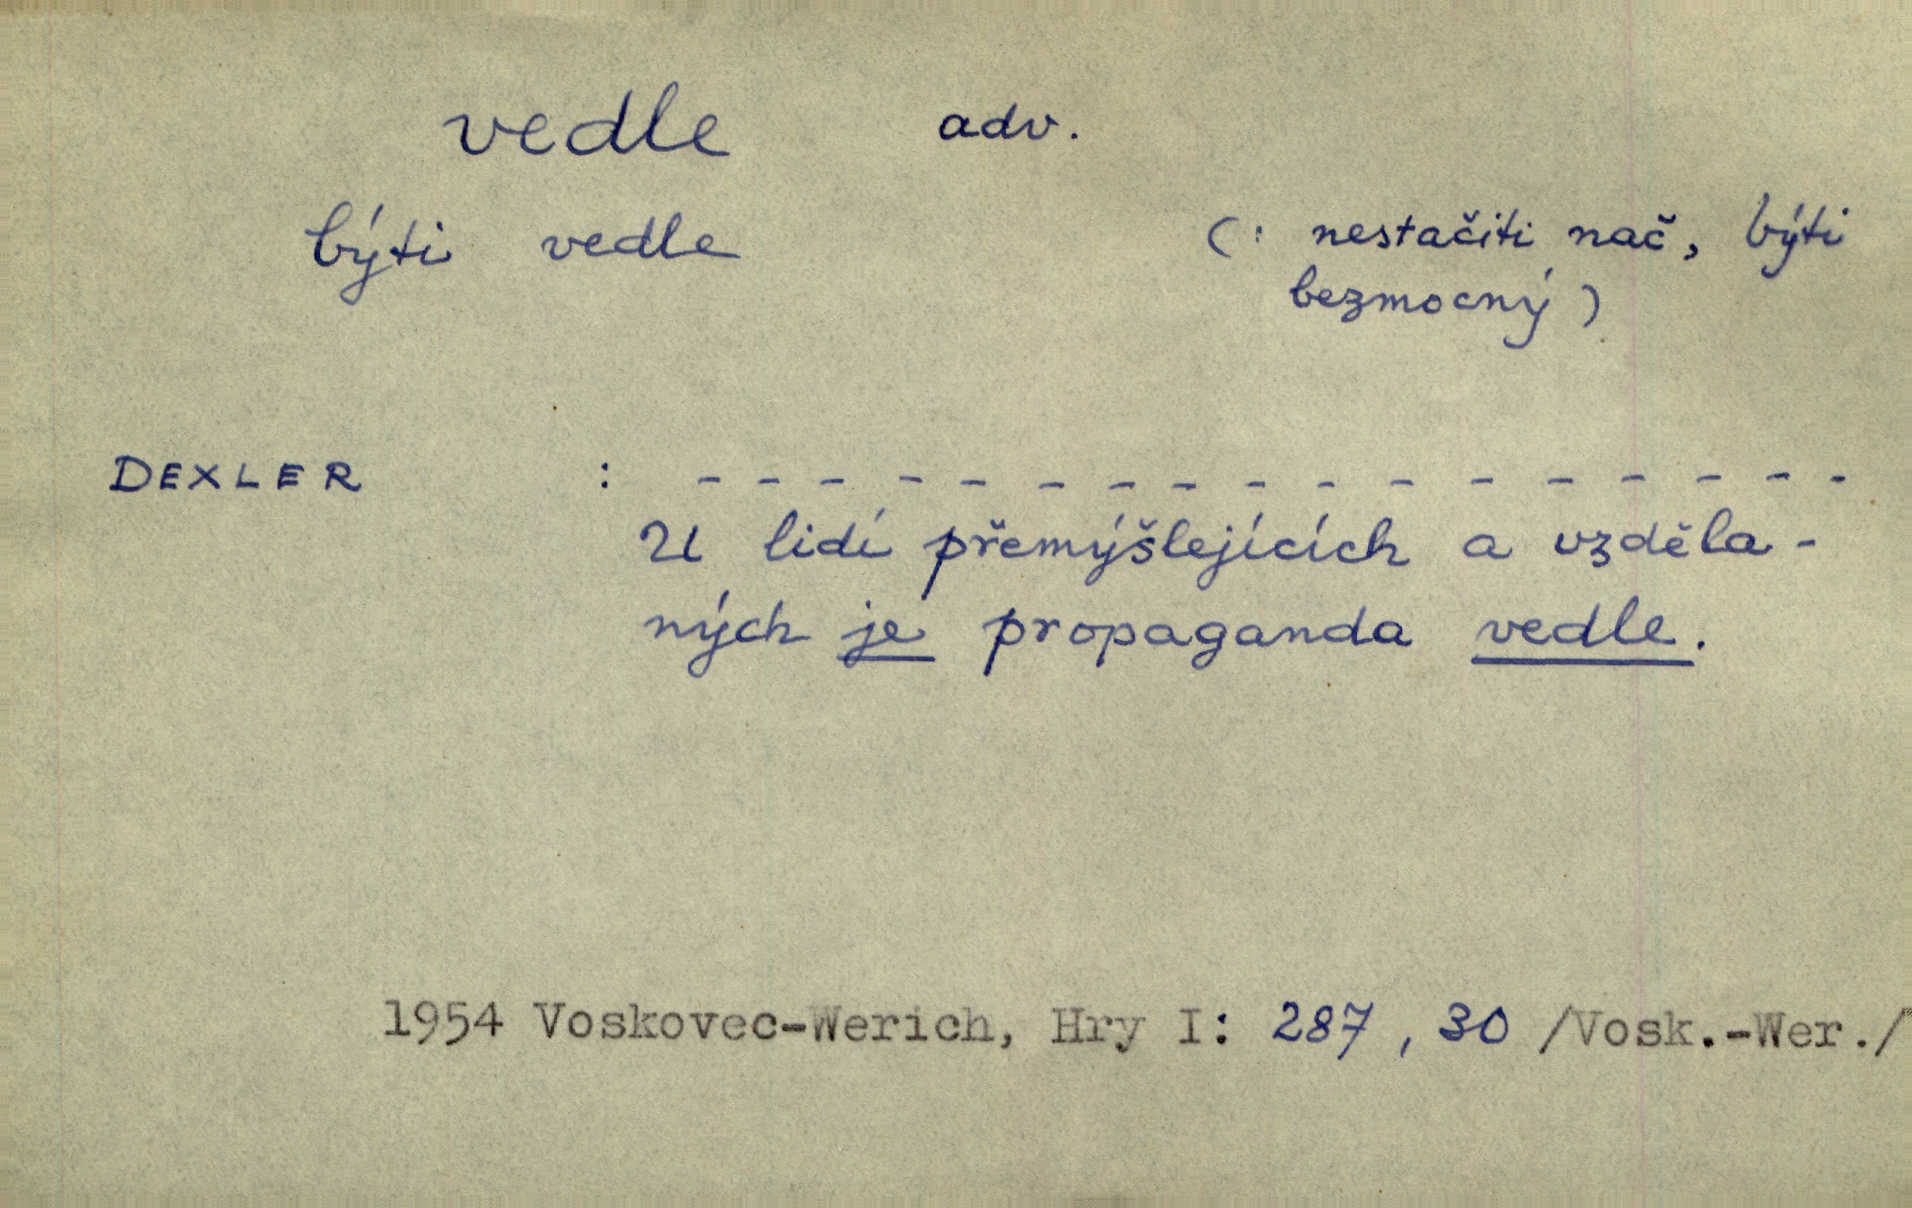 vedle adv.
býti vedle (: nestačiti nač, býti
bezmocný)
DEXLER : - - - - - - - - - - - - - - - -
U lidí přemýšlejících a vzděla-
ných je propaganda vedle.
1954 Voskovec-Werich, Hry I: 287, 30 /Vosk.-Wer./